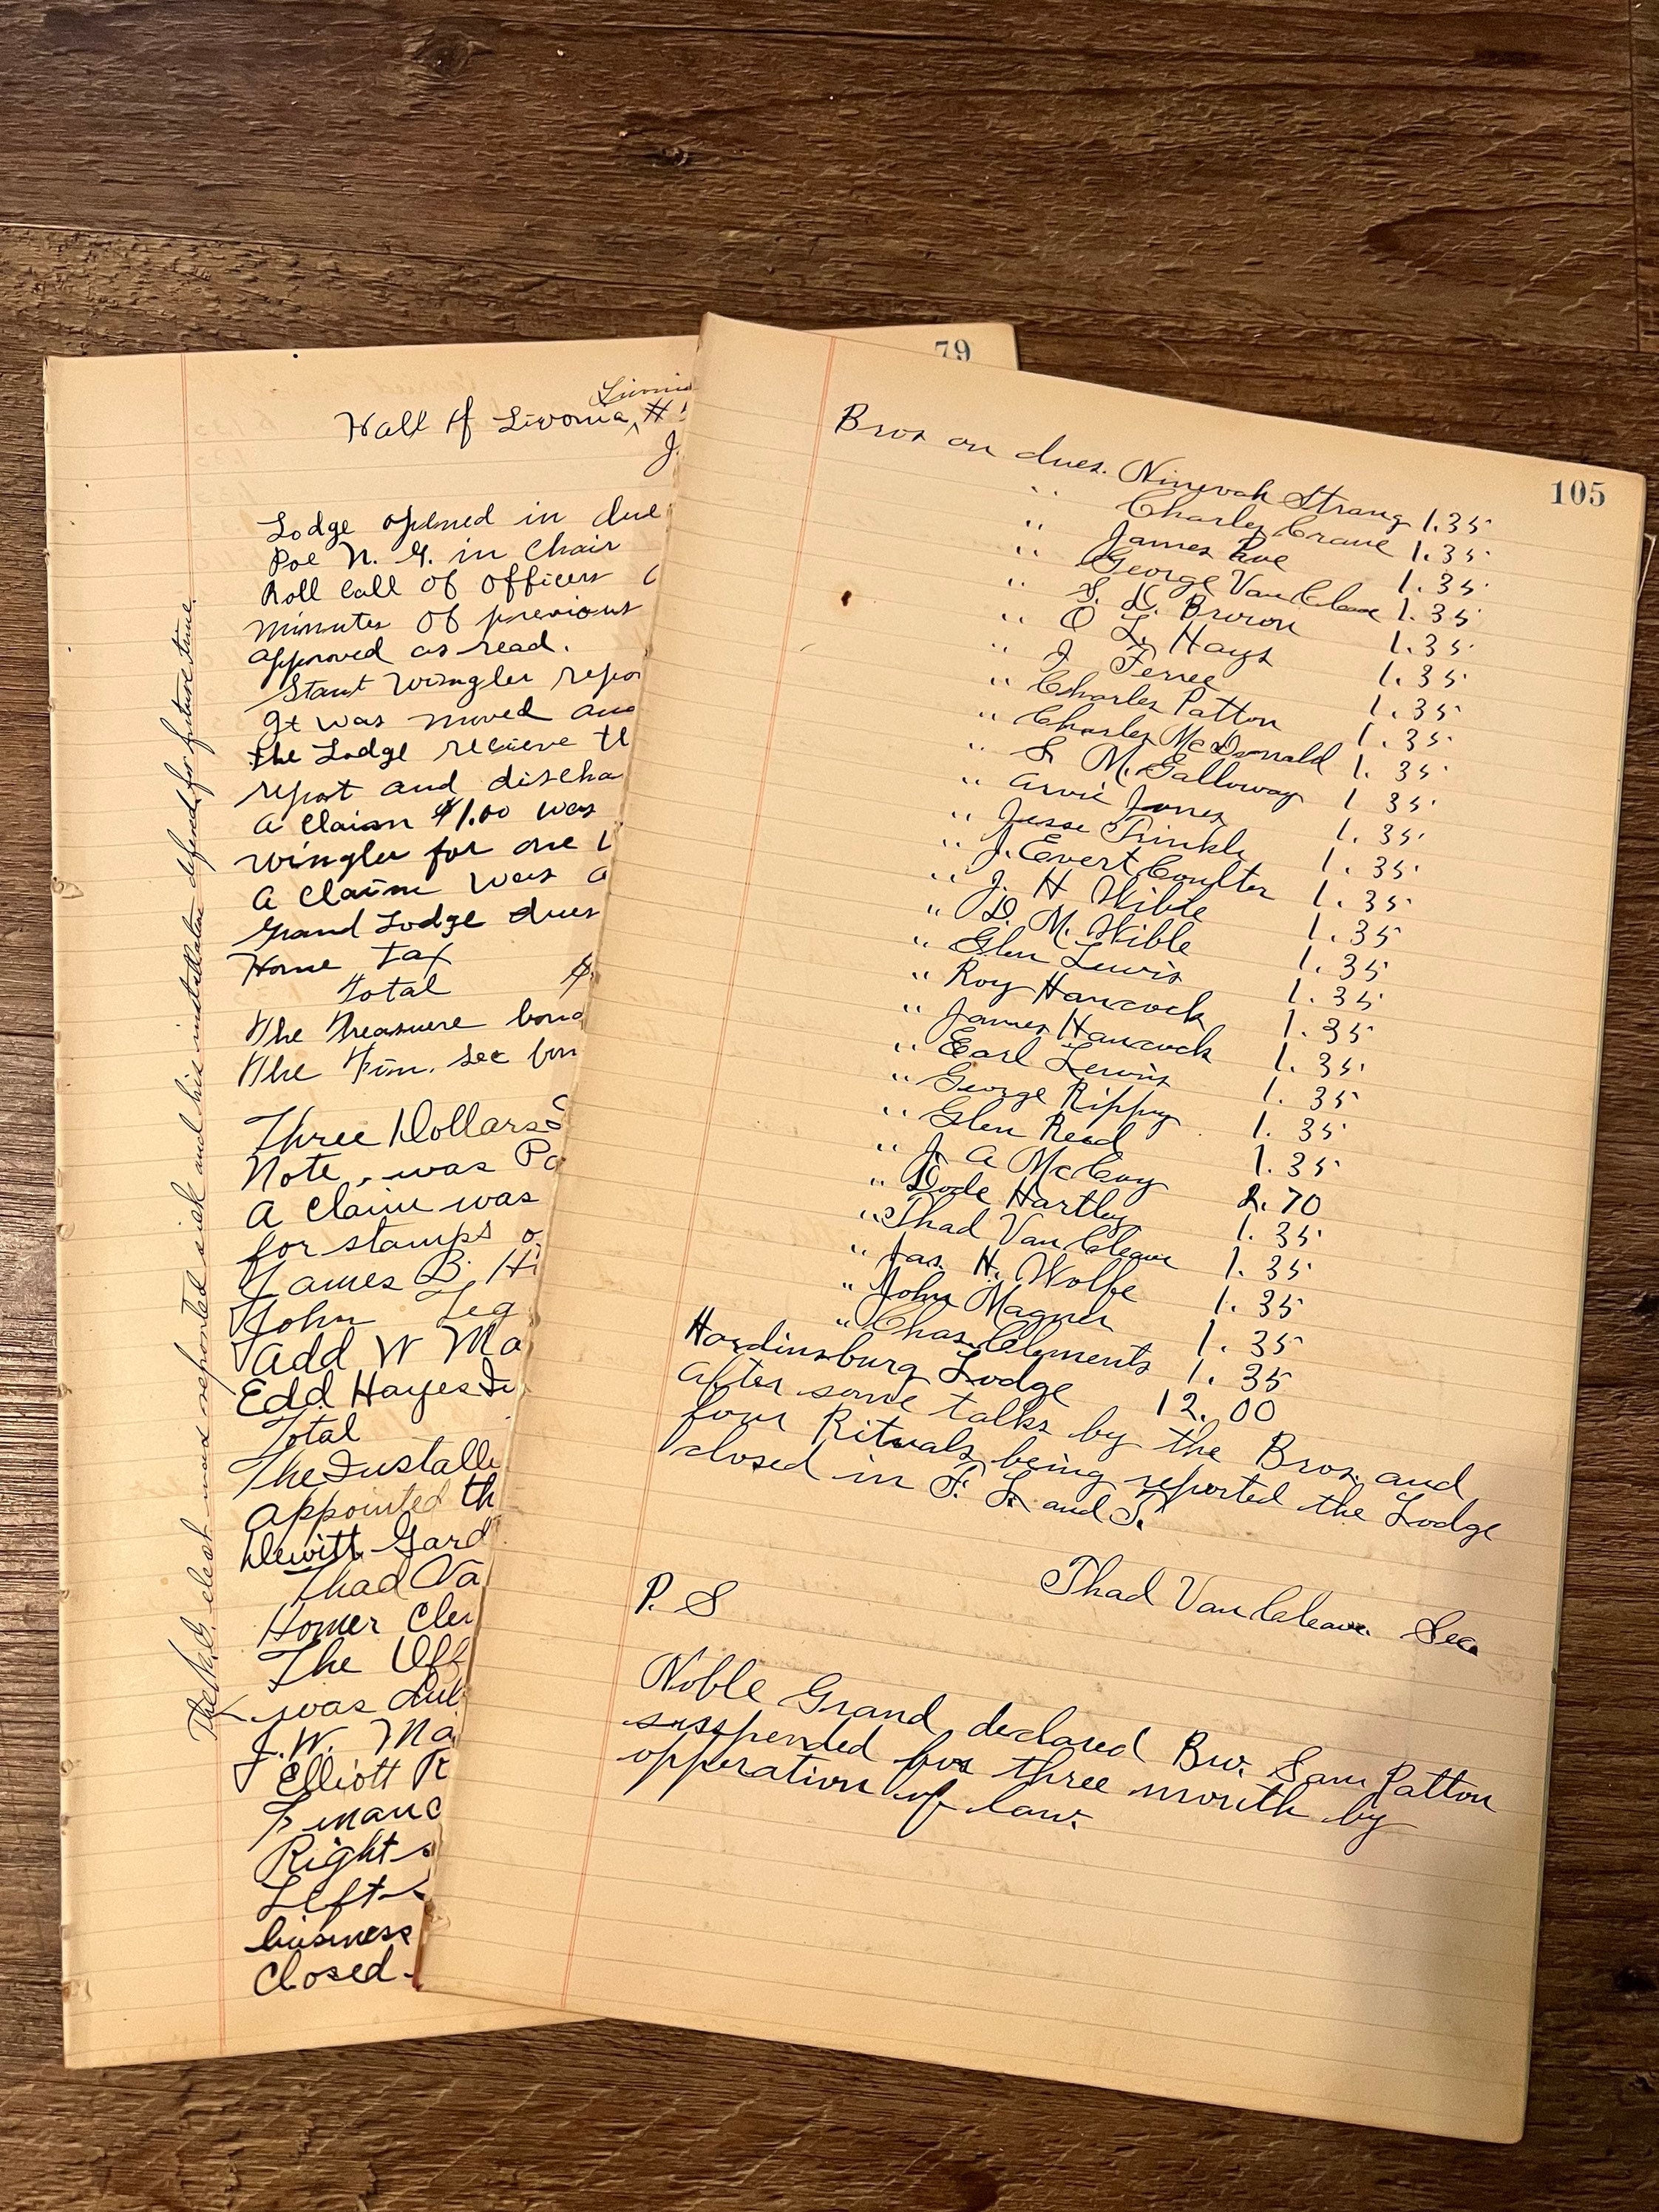 79
Livonia
Hall of Livonia, #
J.
Lodge opened in due
Poe N. G. in Chair
Roll Call of Officers
minutes of previous
approved as read.
Stant Wingler repo
It was moved an
the Lodge recieve
report and discha
a Claim $1.00 was
Wingler for one
A Claim was a
Grand Lodge dues
Home Tax
Total $
The Treasure bond
The Fin. sec bon
Three Dollars
Note, was Pa
A Claim was
for stamps
James B. Hi
John Teg
Add W Ma
Edd Hayes
Total
The Installi
appointed th
Dewitt Gard
Thad Va
Homer Cler
The Off
was dul
J. W. Ma
Elliott
Financ
Right
Left
business
Closed.
The N.G. elect was reported sick and his installation defered for future time.
105
Bros on dues. Ninevah Strang 1.35
" Charley Crane 1.35
" James Poe 1.35
" George Van Cleave 1.35
" S. K. Brown 1.35
" O L. Hays 1.35
" J Ferree 1.35
" Charles Patton 1.35
" Charles McDonald 1.35
" S. M. Galloway 1 35
" Arvie Jones 1.35
" Jesse Trinkle 1.35
" J. Evert Coulter 1.35
" J. H Wible 1.35
" D. M. Wible 1.35
" Glen Lewis 1.35
" Roy Hancock 1.35
" James Hancock 1.35
" Earl Lewis 1.35
" George Rippy 1.35
" Glen Read 1.35
" J. A McCoy 2.70
" Dode Hartley 1.35
" Thad Van Cleave 1.35
" Jas. H. Wolfe 1.35
" John Magner 1.35
" Chas Clements 1.35
Hardinsburg Lodge 12.00
After some talks by the Bros. and
four Rituals being reported the Lodge
closed in F. L. and T.
Thad Van Cleave Sec.
P. S
Noble Grand declared Bro. Sam Patton
suspended for three month by
opperation of law.